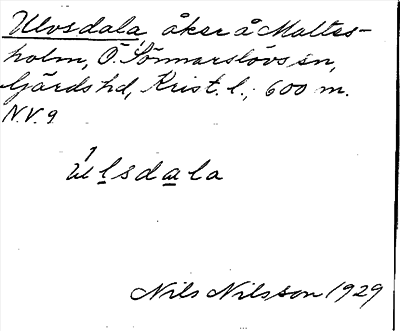 Ulvsdala, åker å Maltes-
holm, Ö. Sönnarslövs sn,
Gärds hd, Krist. l., 600 m.
N.V. 9
ú l s d a l a
Nils Nilsson 1929